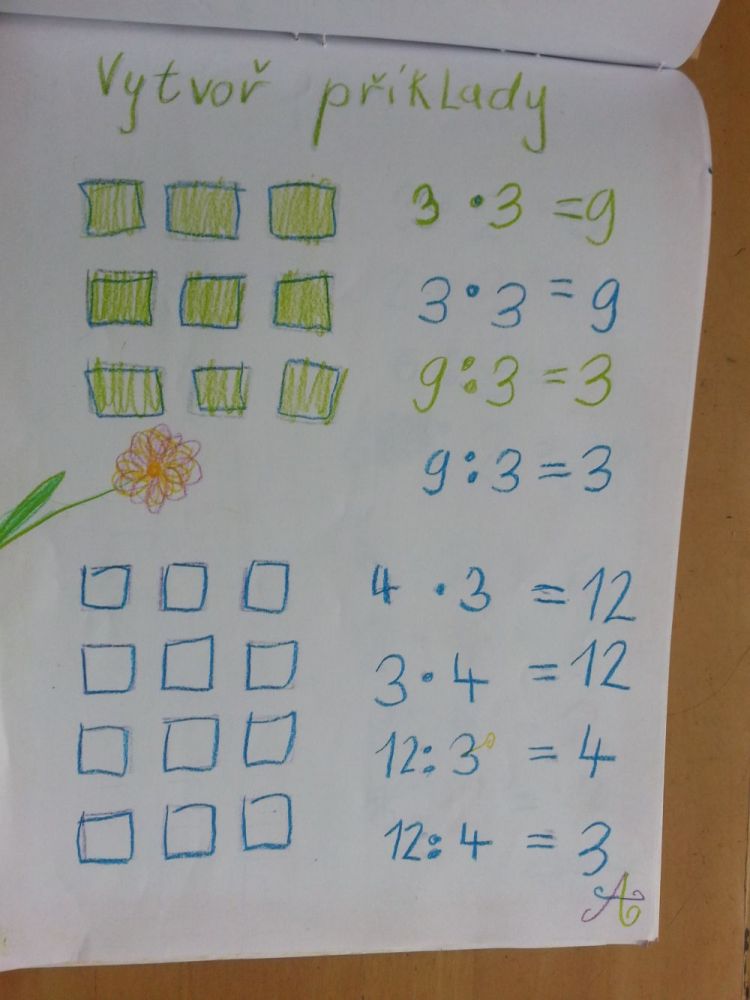 Vytvoř příklady
3 · 3 = 9
3 · 3 = 9
9 : 3 = 3
9 : 3 = 3
4 · 3 = 12
3 · 4 = 12
12 : 3 = 4
12 : 4 = 3
A